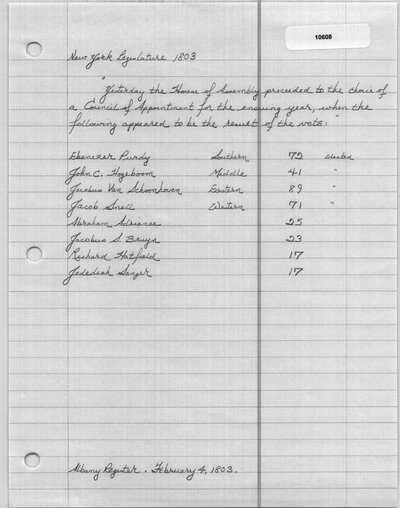 10608
New York Legislature 1803
"Yesterday the House of Assembly proceeded to the choice of
a Council of Appointment for the ensuing year, when the
following appeared to be the result of the vote: "
Ebenezer Purdy Southern 72 elected
John C. Hogeboom Middle 41 "
Jacobus Van Schoonhoven Eastern 89 "
Jacob Snell Western 71 "
Abraham Adriance 25
Jacobus S. Bruyn 23
Richard Hatfield 17
Jedediah Sanger 17
Albany Register. February 4, 1803.